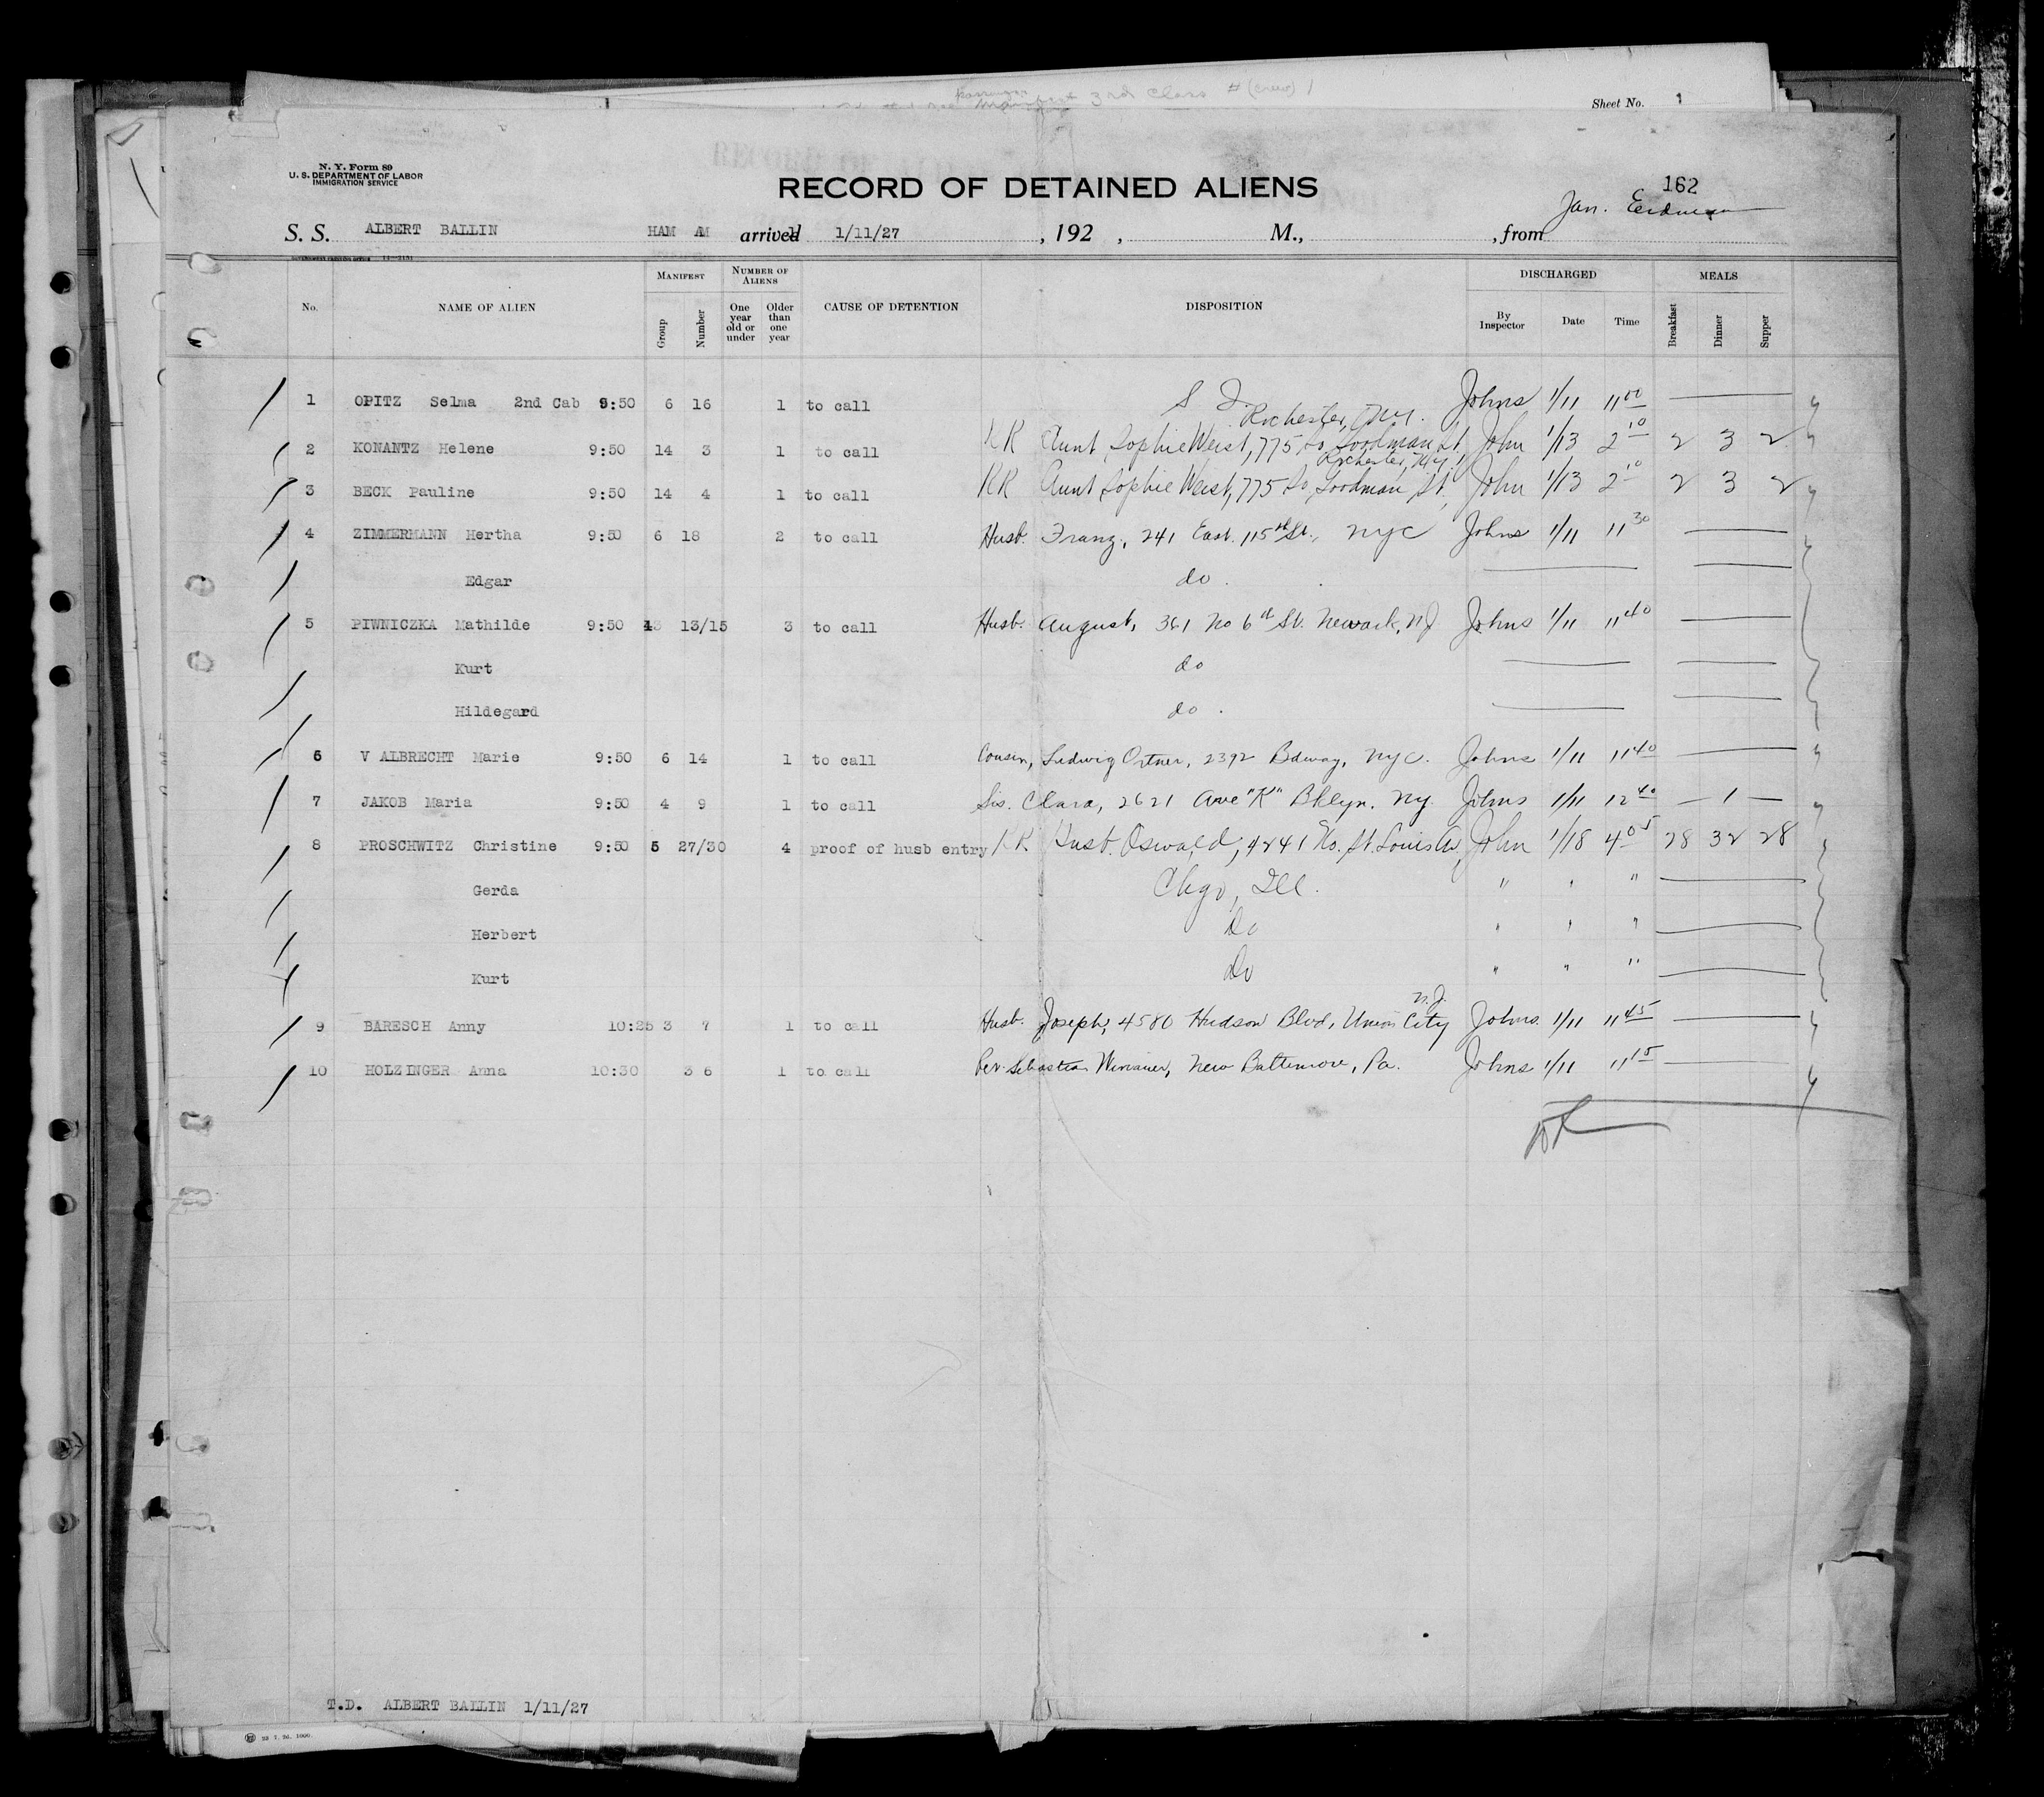 passenger
Manifest 3rd Class # (crew) 1
Sheet No. 1
N. Y. Form 89
U. S. DEPARTMENT OF LABOR
IMMIGRATION SERVICE
RECORD OF DETAINED ALIENS
162
Jan. Erdman
S. S. ALBERT BALLIN HAM AM arrived 1/11/27 , 192 , M., , from
GOVERNMENT PRINTING OFFICE
No. NAME OF ALIEN MANIFEST NUMBER OF ALIENS CAUSE OF DETENTION DISPOSITION DISCHARGED MEALS
Group Number One year old or under Older than one year By Inspector Date Time Breakfast Dinner Supper
1 OPITZ Selma 2nd Cab 9:50 6 16 1 to call S I. Johns 1/11 11 00
Rochester, N.Y.
2 KONANTZ Helene 9:50 14 3 1 to call RR Aunt Sophie Weist, 775 So. Goodman St, John 1/13 2 10 2 3 2
Rochester, N.Y.
3 BECK Pauline 9:50 14 4 1 to call RR Aunt Sophie Weist, 775 So. Goodman St, John 1/13 2 10 2 3 2
4 ZIMMERMANN Hertha 9:50 6 18 2 to call Husb. Franz, 241 East. 115th St., NYC Johns 1/11 11 30
Edgar do.
5 PIWNICZKA Mathilde 9:50 13 13/15 3 to call Husb. August, 361 No 6th St. Newark, NJ Johns 1/11 11 40
Kurt do
Hildegard do.
6 V ALBRECHT Marie 9:50 6 14 1 to call Cousin, Ludwig Ortner, 2392 Bdway, NYC. Johns 1/11 11 40
7 JAKOB Maria 9:50 4 9 1 to call Sis. Clara, 2621 Ave "K" Bklyn. NY. Johns 1/11 12 40 — 1 —
8 PROSCHWITZ Christine 9:50 5 27/30 4 proof of husb entry RR Husb. Oswald, 4241 No. St. Louis Av, John 1/18 4 05 28 32 28
Gerda Chgo, Ill. " " "
Herbert Do " " "
Kurt Do " " "
N.J.
9 BARESCH Anny 10:25 3 7 1 to call Husb. Joseph, 4580 Hudson Blvd, Union City Johns. 1/11 11 45
10 HOLZINGER Anna 10:30 3 6 1 to call Rev. Sebastian New Baltimore, Pa. Johns 1/11 11 15
T.D. ALBERT BALLIN 1/11/27